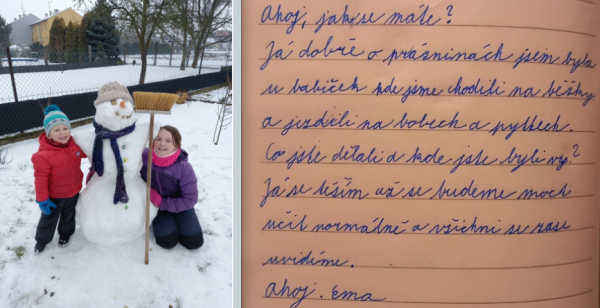 Ahoj, jak se máte?
Já dobře o prásninách jsem byla
u babiček kde jsme chodili na běžky
a jezdili na bobech a pytlech.
Co jste dělali a kde jste byli vy?
Já se těším až se budeme moct
učit normálně a všichni se zase
uvidíme.
Ahoj. Ema